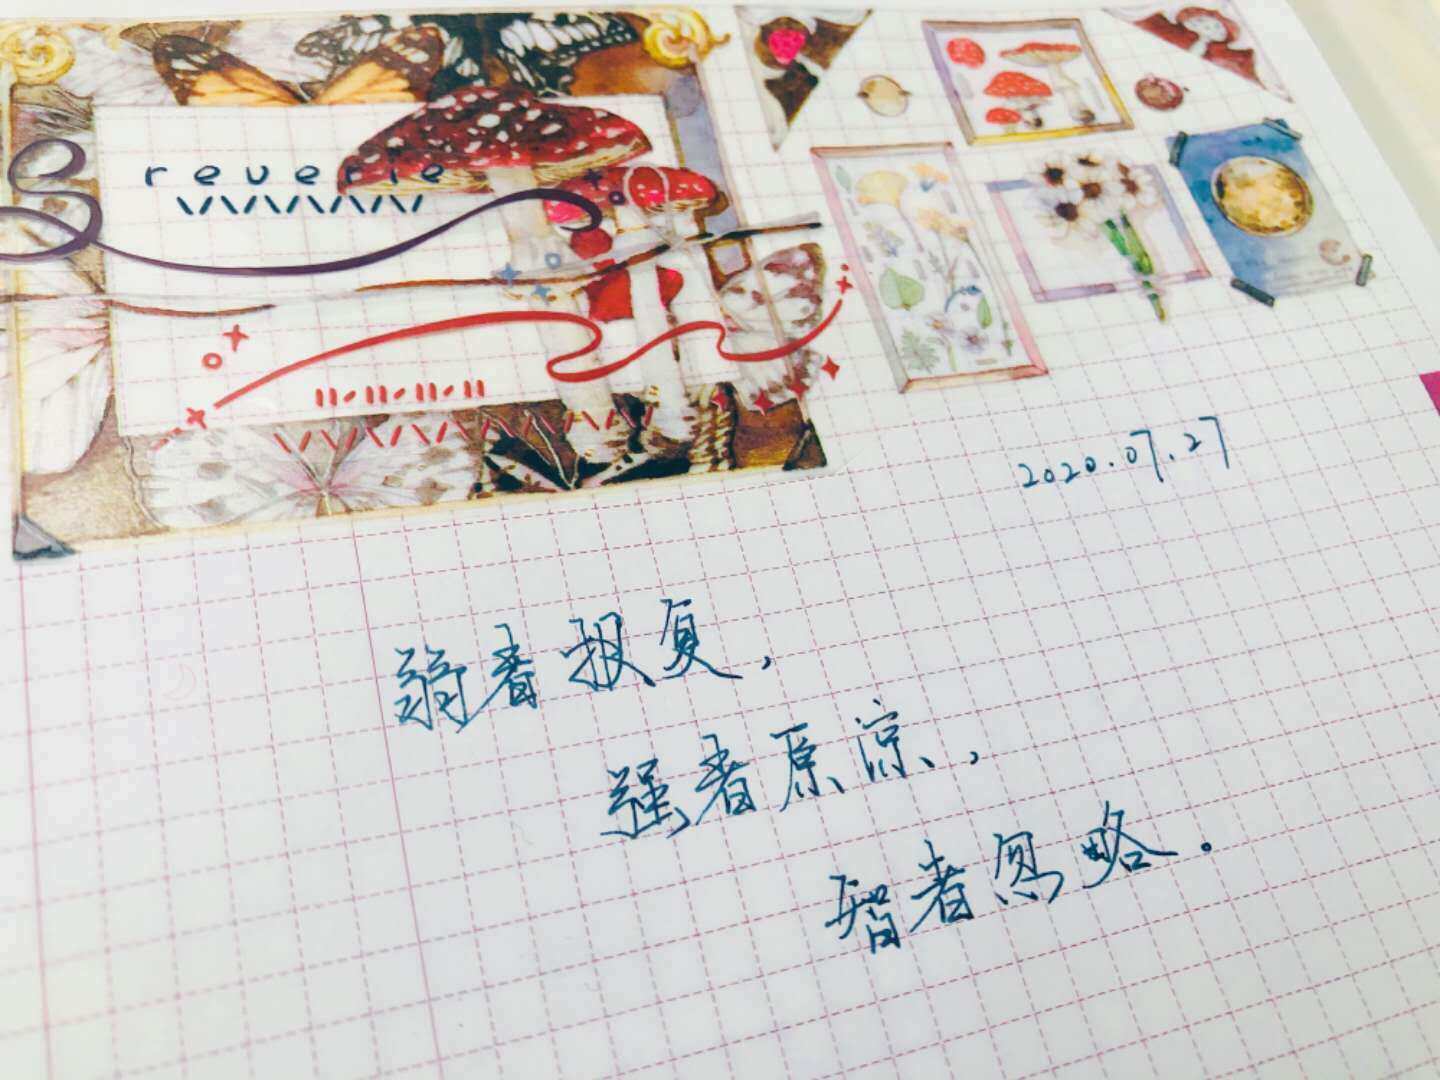 reverie
2020.07.27
弱者报复，
强者原谅，
智者忽略。